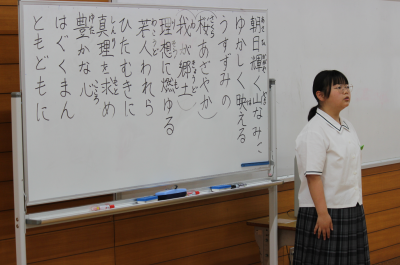 朝日輝く山なみに
ゆかしく映える
うすずみの
桜あざやか
我が郷土
理想に燃ゆる
若人われら
ひたむきに
真理を求め
豊かな心
はぐくまん
ともどもに